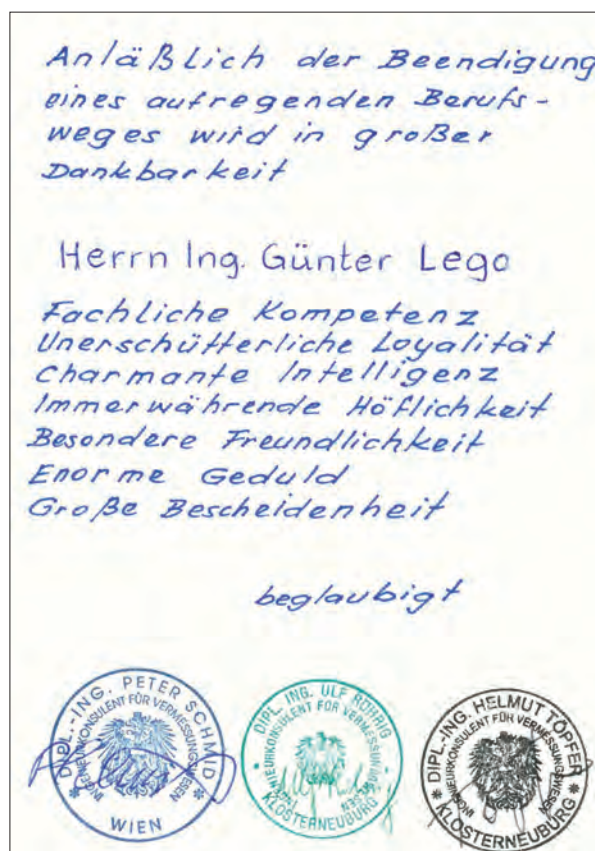 Anläßlich der Beendigung
eines aufregenden Berufs-
weges wird in großer
Dankbarkeit
Herrn Ing. Günter Lego
Fachliche Kompetenz
Unerschütterliche Loyalität
Charmante Intelligenz
Immerwährende Höflichkeit
Besondere Freundlichkeit
Enorme Geduld
Große Bescheidenheit
beglaubigt
DIPL.-ING. PETER SCHMID
INGENIEURKONSULENT FÜR VERMESSUNGSWESEN
WIEN
DIPL. ING. ULF RÖHRIG
INGENIEURKONSULENT FÜR VERMESSUNGSWESEN
KLOSTERNEUBURG
DIPL.-ING. HELMUT TÖPFER
INGENIEURKONSULENT FÜR VERMESSUNGSWESEN
KLOSTERNEUBURG